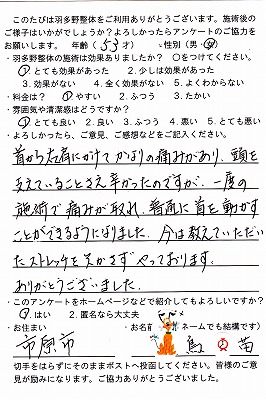 このたびは羽多野整体をご利用ありがとうございます。施術後の
ご様子はいかがでしょうか？よろしかったらアンケートのご協力を
お願いします。 年齢（53才） ・性別（男・女）
・羽多野整体の施術は効果ありましたか？ ○をつけてください。
1. とても効果があった 2. 少しは効果があった
3. 効果がない 4. 全く効果がない 5. よくわからない
・料金は？ 1. やすい 2. ふつう 3. たかい
・雰囲気や清潔感はどうですか？
1. とても良い 2. 良い 3. ふつう 4. 悪い 5. とても悪い
・よろしかったら、ご意見、ご感想などをご記入ください。
首から右肩にかけてかなりの痛みがあり、頭を
支えていることさえ辛かったのですが、一度の
施術で痛みが取れ、普通に首を動かす
ことができるようになりました。今は教えていただい
たストレッチを欠かさずやっております。
ありがとうございました。
・このアンケートをホームページなどで紹介してもよろしいですか？
1. はい 2. 匿名なら大丈夫
・お住まい ・お名前 ネームでも結構です）
市原市 鳥 苗
切手をはらずにそのままポストへ投函してください。皆様のご意
見が励みになります。ご協力ありがとうございました。